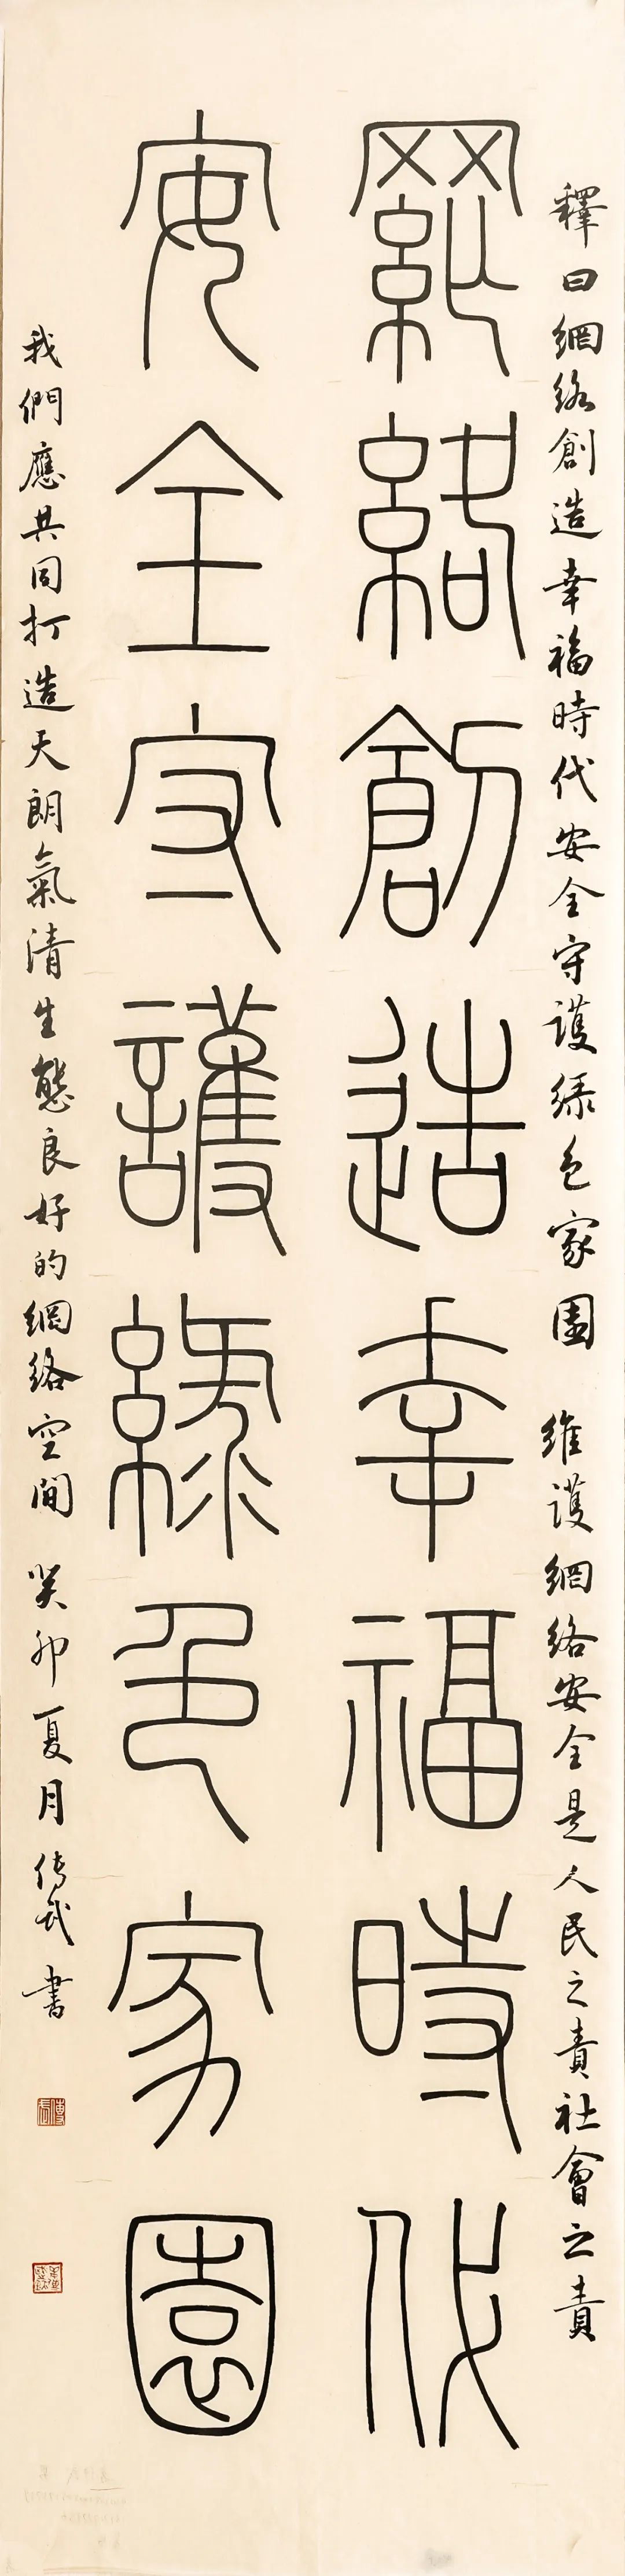 釋曰網絡創造幸福時代安全守護綠色家園 維護網絡安全是人民之責社會之責
網絡創造幸福時代
安全守護綠色家園
我們應共同打造天朗氣清生態良好的網絡空間 癸卯夏月傳武書